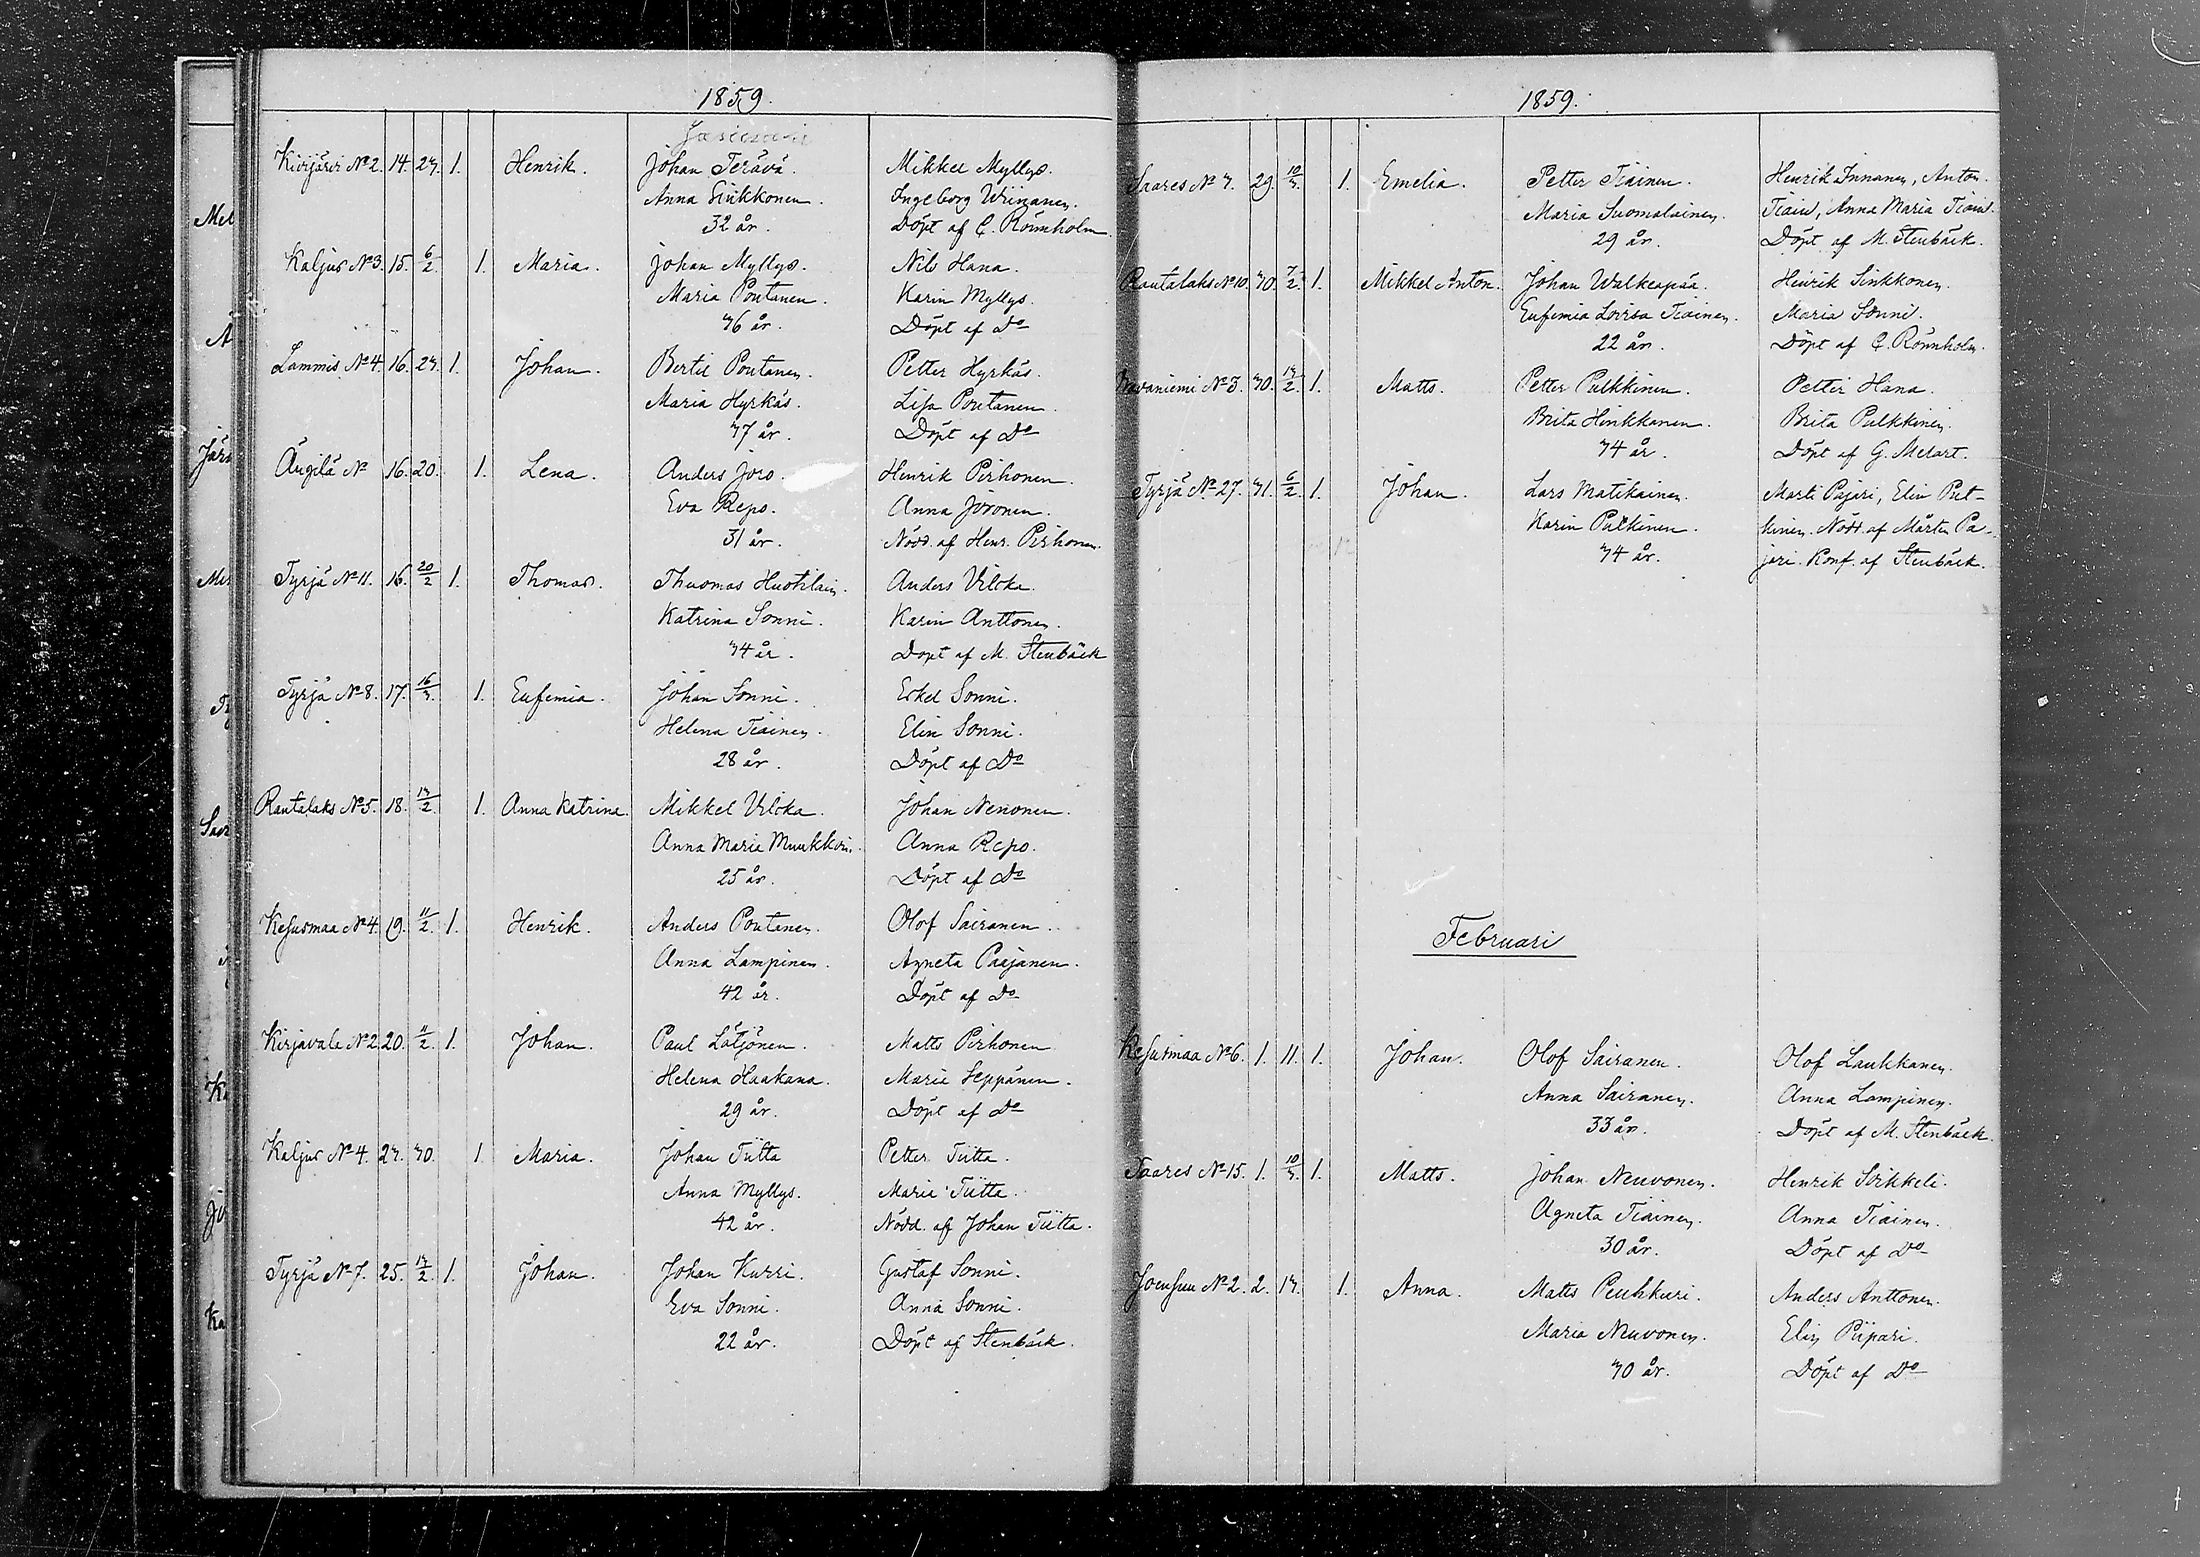 1859.
Januari
Kivijärvi No 2. 14. 23. 1. Henrik. Johan Terävä. Mikkel Myllys.
Anna Sinkkonen. Ingeborg Wiinanen.
32 år. Döpt af C. Rönnholm
Kaljus No 3. 15. 6/2. 1. Maria. Johan Myllys. Nils Hana.
Maria Pontanen. Karin Myllys.
36 år. Döpt af Do
Lammis No 4. 16. 23. 1. Johan. Bertil Pontanen. Petter Hyrkäs.
Maria Hyrkäs. Lisa Pontanen.
37 år. Döpt af Do
Ängilä No 16. 20. 1. Lena. Anders Joro. Henrik Pirhonen.
Eva Repo. Anna Joronen.
31 år. Nödd. af Henr. Pirhonen.
Tyrjä No 11. 16. 20/2 1. Thomas. Thuomas Huotilain. Anders Vilska.
Katrina Sonni. Karin Anttonen.
34 år. Döpt af M. Stenbäck
Tyrjä No 8. 17. 16/3. 1. Eufemia. Johan Sonni. Erkel Sonni.
Helena Tiainen. Elin Sonni.
28 år. Döpt af Do
Rautalaks No 5. 18. 13/2. 1. Anna Katrina. Mikkel Vilska. Johan Nenonen.
Anna Maria Muukkoin. Anna Repo.
25 år. Döpt af Do
Kesusmaa No 4. 19. 11/2. 1. Henrik. Anders Pontanen. Olof Sairanen.
Anna Lampinen. Agneta Paajanen.
42 år. Döpt af Do
Kirjavala No 2 20. 11/2. 1. Johan. Paul Lötjönen. Matts Pirhonen
Helena Haakana. Maria Seppänen.
29 år. Döpt af Do
Kaljus No 4. 23. 30. 1. Maria. Johan Tiitta Petter Tiitta.
Anna Myllys. Maria Tiitta.
42 år. Nödd. af Johan Tiitta.
Tyrjä No 7. 25. 13/2. 1. Johan. Johan Kurri. Gustaf Sonni.
Eva Sonni. Anna Sonni.
22 år. Döpt af Stenbäck.
1859.
Saares No 3. 29. 10/3. 1. Emelia. Petter Tiainen. Henrik Innanen, Anton
Maria Suomalainen. Tiain, Anna Maria Tiain.
29 år. Döpt af M. Stenbäck.
Rautalaks No 10. 30. 7/2. 1. Mikkel Anton. Johan Walkeapää. Henrik Sinkkonen.
Eufemia Lovisa Tiainen. Maria Sonni.
22 år. Döpt af C. Rönnholm.
No 3. 30. 13/2. 1. Matts. Petter Pulkkinen. Petter Hana.
Brita Hinkkanen. Brita Pulkkinen.
34 år. Döpt af G. Melart.
Tyrjä No 27. 31. 6/2. 1. Johan. Lars Matikainen. Marti Pajari, Elin Put-
Karin Putkinen. kinen. Nödd af Mårten Pa-
34 år. jari. Konf. af Stenbäck.
Februari
Kesusmaa No 6. 1. 11. 1. Johan. Olof Sairanen. Olof Laukkanen.
Anna Sairanen. Anna Lampinen.
33 år. Döpt af M. Stenbäck.
Saares No 15. 1. 10/3. 1. Matts. Johan Neuvonen. Henrik Sirkkeli.
Agneta Tiainen. Anna Tiainen.
30 år. Döpt af Do
Joensuu No 2. 2. 13. 1. Anna. Matts Peuhkuri. Anders Anttonen.
Maria Neuvonen. Elin Piipari.
30 år. Döpt af Do